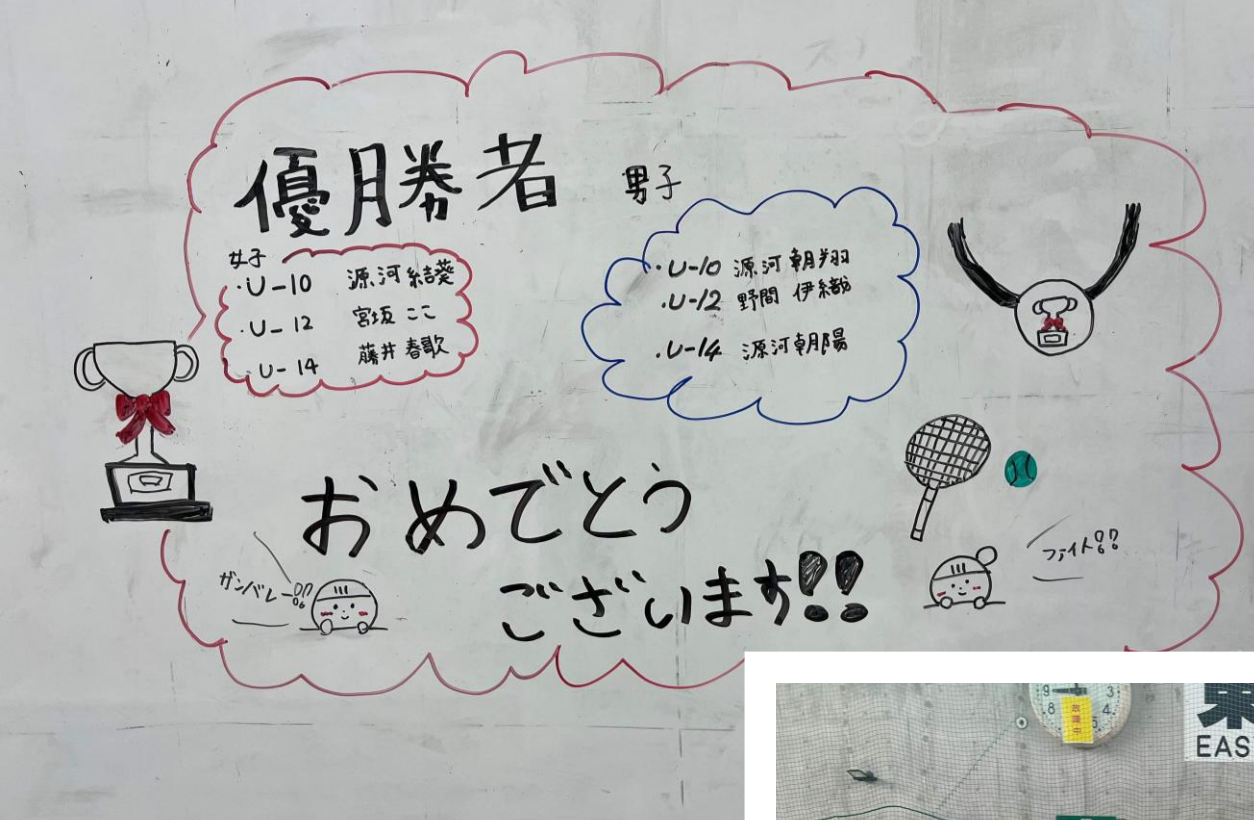 優勝者
女子
・U-10 源河結葵
・U-12 宮坂ここ
・U-14 藤井春歌
男子
・U-10 源河朝翔
・U-12 野間伊織
・U-14 源河朝陽
おめでとう
ございます!!
ガンバレー!!
ファイト!!
9 3
8 4
5
故障中
東
EAS